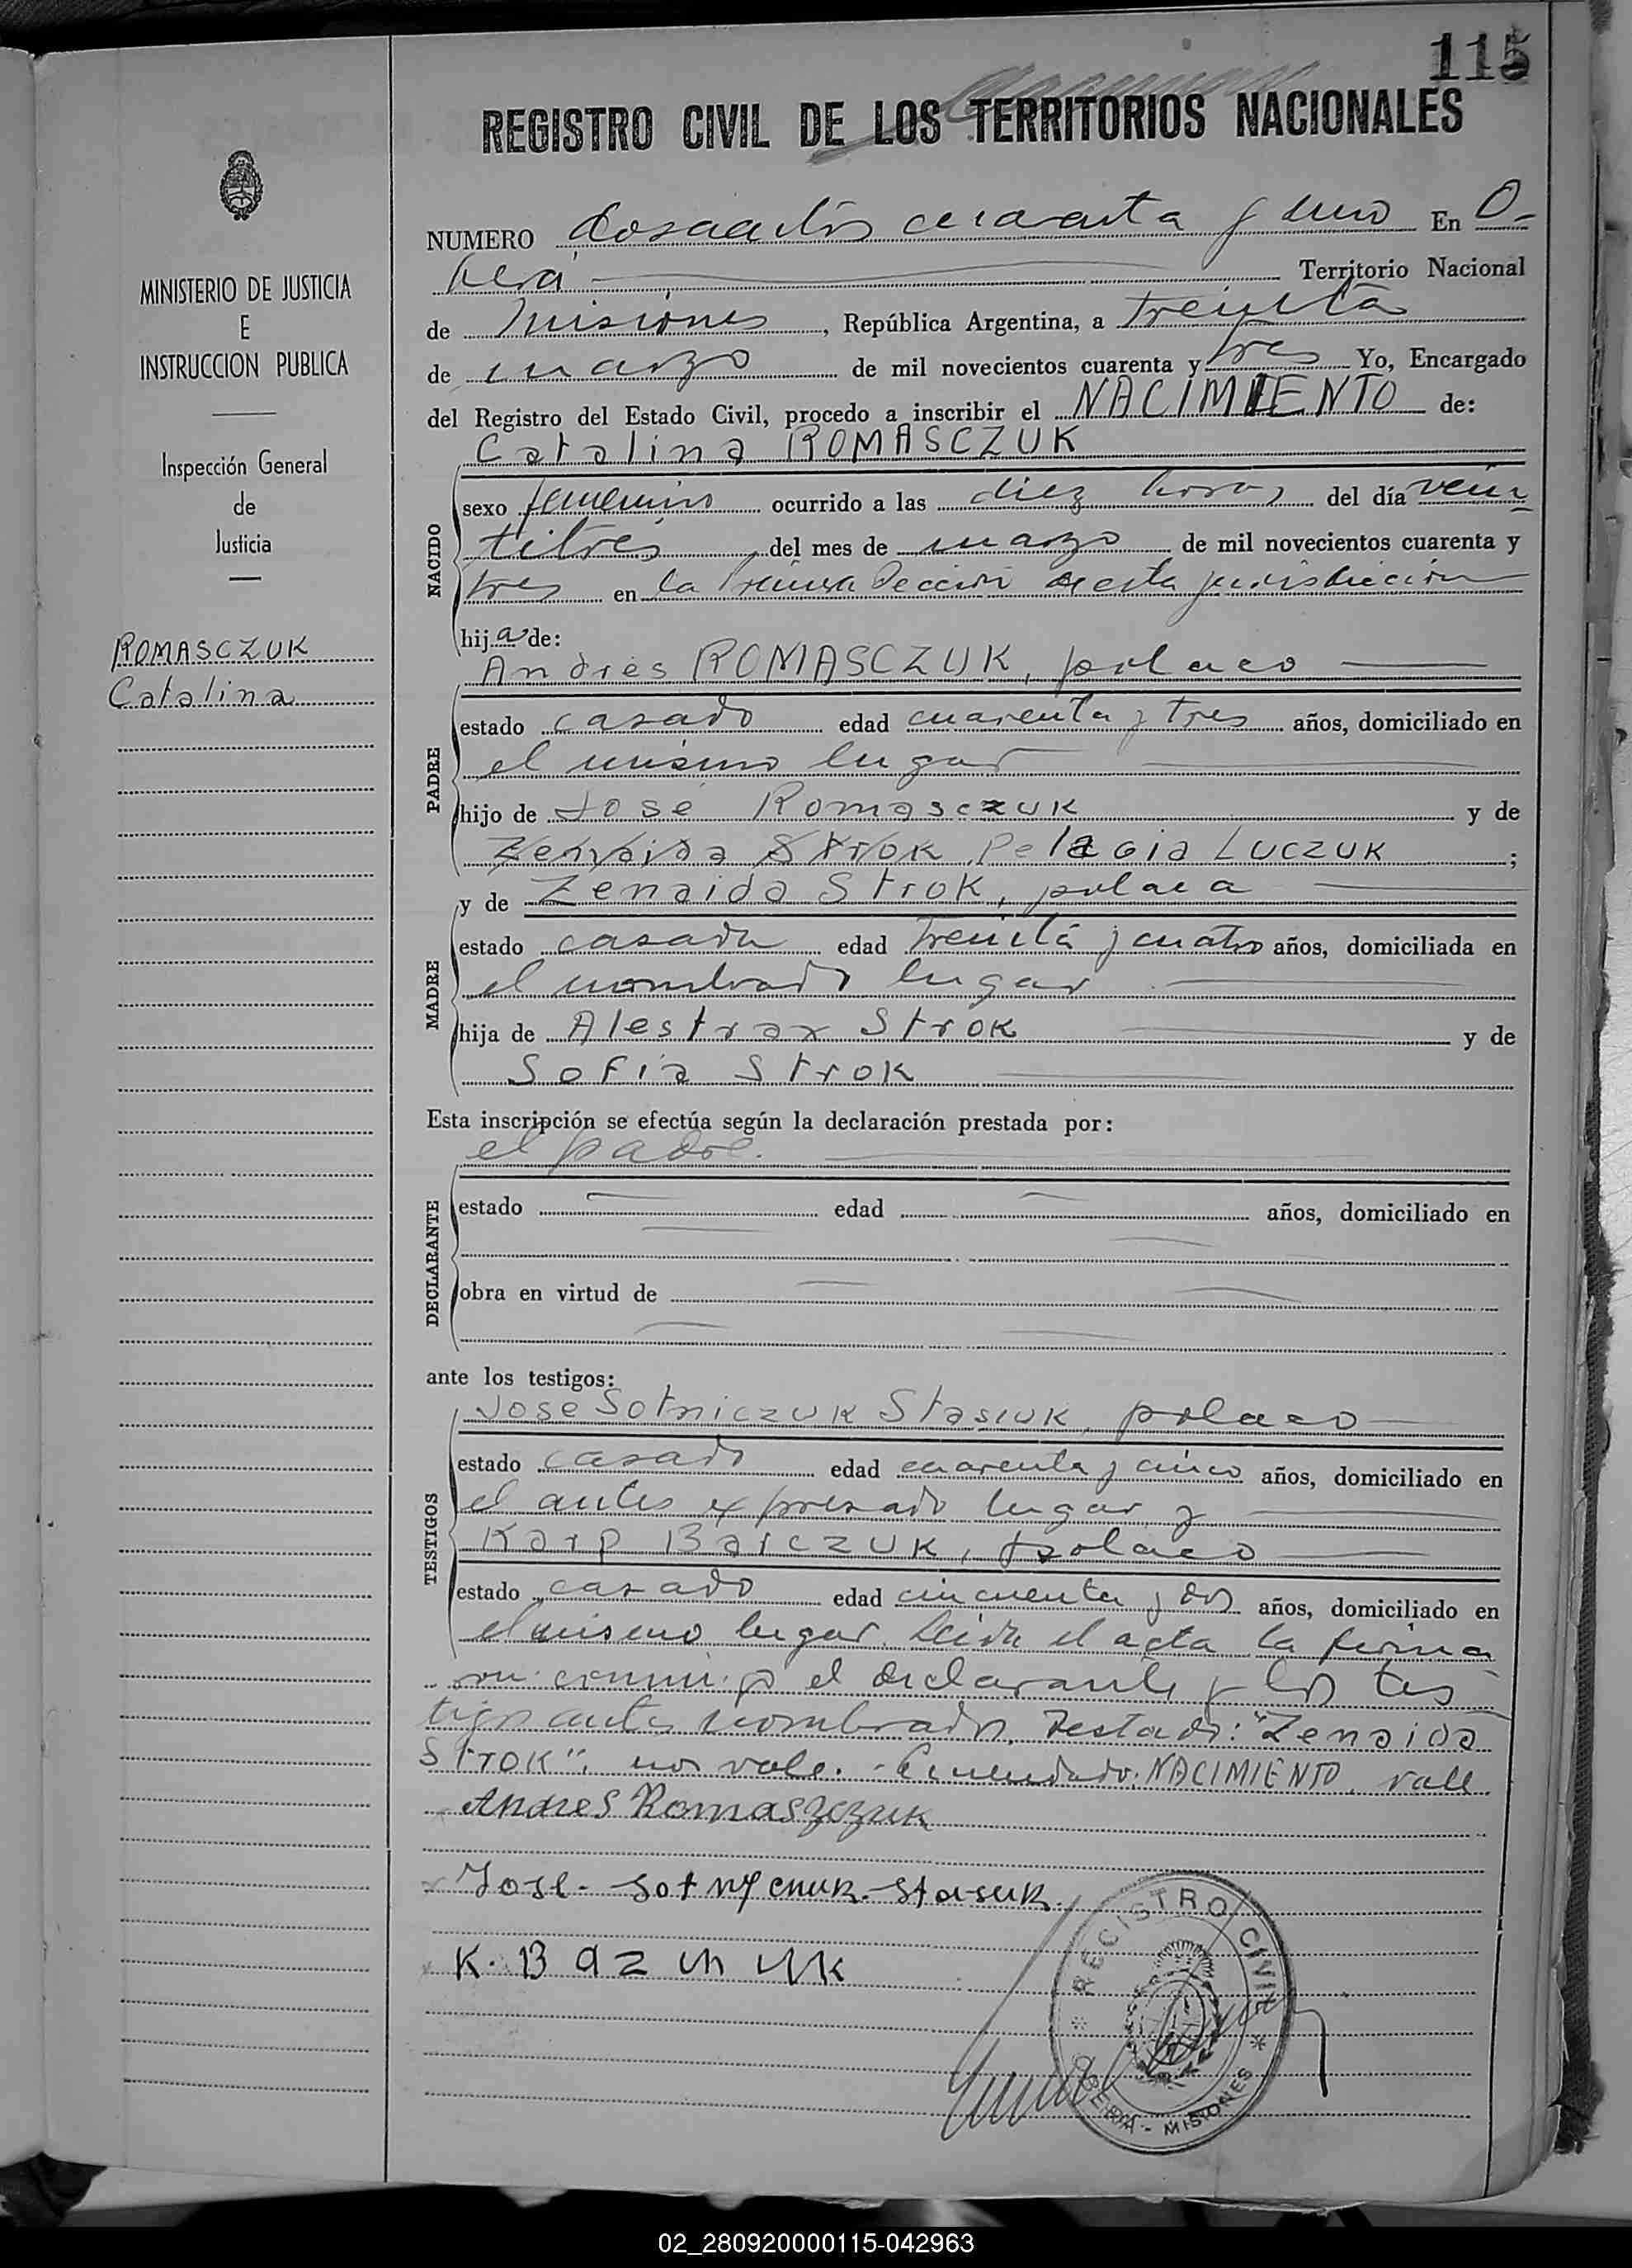 115
REGISTRO CIVIL DE LOS TERRITORIOS NACIONALES
MINISTERIO DE JUSTICIA
E
INSTRUCCION PUBLICA
Inspección General
de
Justicia
ROMASCZUK
Catalina
NUMERO doscientos cuarenta y uno En O-
berá Territorio Nacional
de Misiones, República Argentina, a treinta
de marzo de mil novecientos cuarenta y tres Yo, Encargado
del Registro del Estado Civil, procedo a inscribir el NACIMIENTO de:
Catalina ROMASCZUK
NACIDO
sexo femenino ocurrido a las diez horas del día vein
titres del mes de marzo de mil novecientos cuarenta y
tres en la Primera Sección de esta jurisdicción
hija de:
Andrés ROMASCZUK, polaco
PADRE
estado casado edad cuarenta y tres años, domiciliado en
el mismo lugar
hijo de José Romasczuk y de
Zenaida Strok Pelagia Luczuk ;
y de Zenaida Strok, polaca
MADRE
estado casada edad treinta y cuatro años, domiciliada en
el nombrado lugar
hija de Alestrax Strok y de
Sofia Strok
Esta inscripción se efectúa según la declaración prestada por:
el padre.
DECLARANTE
estado edad años, domiciliado en
obra en virtud de
ante los testigos:
José Sotniczuk Stasiuk, polaco
TESTIGOS
estado casado edad cuarenta y cinco años, domiciliado en
el antes expresado lugar y
Karp Barczuk, polaco
estado casado edad cincuenta y dos años, domiciliado en
el mismo lugar. Leida el acta la firma
ron conmigo el declarante y los tes
tigos antes nombrados. Testado: "Zenaida
Strok": no vale. - Enmendado: NACIMIENTO, vale
Andres Romaszczuk
José - Sotnyczuk - Stasiuk.
K. Bazczuk
REGISTRO CIVIL
OBERÁ - MISIONES
02_280920000115-042963